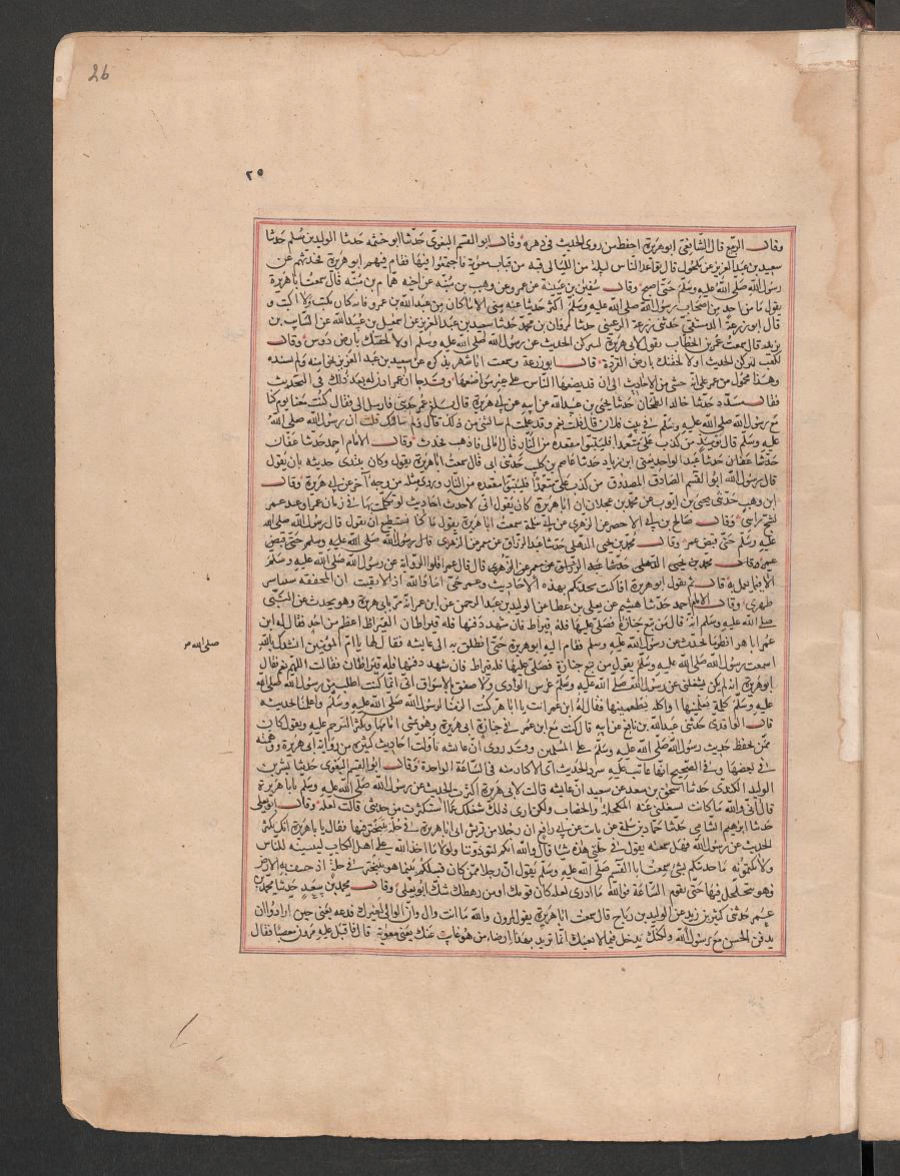 26
٢٥
وقال الربيع قال الشافعي ابو هريرة احفظ من روى الحديث في دهره وقال ابو القسم البغوي حدثنا ابو خيثمة حدثنا الوليد بن مسلم حدثنا
سعيد بن عبد العزيز عن مكحول قال تواعد الناس ليلة من الليالي قبة من قباب معوية فاجتمعوا فيها فقام فيهم ابو هريرة فحدثهم عن
رسول الله صلى الله عليه وسلم حتى اصبح وقال سفيان بن عيينة عن عمرو عن وهب بن منبه عن اخيه همام بن منبه قال سمعت ابا هريرة
يقول ما من احد من اصحاب رسول الله صلى الله عليه وسلم اكثر حديثا عنه مني الا ما كان من عبد الله بن عمرو فانه كان يكتب ولا اكتب و
قال ابو زرعة الدمشقي حدثني زرعة الرعيني حدثنا مروان بن محمد حدثنا سعيد بن عبد العزيز عن اسمعيل بن عبيد الله عن السائب بن
يزيد قال سمعت عمر بن الخطاب يقول لابي هريرة لتتركن الحديث عن رسول الله صلى الله عليه وسلم او لالحقنك بارض دوس وقال
لكعب لتتركن الحديث او لالحقنك بارض القردة قال ابو زرعة وسمعت ابا مسهر يذكره عن سعيد بن عبد العزيز نحوا منه ولم يسنده
وهذا محمول من عمر على انه خشي من الاحاديث التي قد يضعها الناس على غير مواضعها وقد جا ان عمر اذن له بعد ذلك في التحديث
فقال مسدد حدثنا خالد الطحان حدثنا يحيى بن عبد الله عن ابيه عن ابي هريرة قال بلغ عمر حديثي فارسل الي فقال كنت معنا يوم كنا
مع رسول الله صلى الله عليه وسلم في بيت فلان قال قلت نعم وقد علمت لم سالتني عن ذلك قال ولم سالتك قلت ان رسول الله صلى الله
عليه وسلم قال يومئذ من كذب علي متعمدا فليتبوا مقعده من النار قال اما لي فاذهب فحدث وقال الامام احمد حدثنا عفان
حدثنا عفان حدثنا عبد الواحد يعني ابن زياد حدثنا عاصم بن كليب حدثني ابي قال سمعت ابا هريرة يقول وكان يبتدي حديثه بان يقول
قال رسول الله ابو القسم الصادق المصدوق من كذب علي متعمدا فليتبوا مقعده من النار وروي مثله من وجه آخر عن ابي هريرة وقال
ابن وهب حدثني يحيى بن ايوب عن محمد بن عجلان ان ابا هريرة كان يقول اني لاحدث احاديث لو تكلمت بها في زمان عمر او عند عمر
لشج راسي وقال صالح بن ابي الاخضر عن الزهري عن ابي سلمة سمعت ابا هريرة يقول ما كنا نستطيع ان نقول قال رسول الله صلى الله
عليه وسلم حتى قبض عمر وقال محمد بن يحيى الذهلي حدثنا عبد الرزاق عن معمر عن الزهري قال رسول الله صلى الله عليه وسلم حتى قبض
عمر وقال محمد بن يحيى الذهلي حدثنا عبد الرزاق عن معمر عن الزهري قال قال عمر اقلوا الرواية عن رسول الله صلى الله عليه وسلم
الا فيما يعمل به قال ثم يقول ابو هريرة افاكنت محدثكم بهذه الاحاديث وعمر حي اما والله اذا لايقنت ان المخفقة ستباشر
ظهري وقال الامام احمد حدثنا هشيم عن يعلى بن عطا عن الوليد بن عبد الرحمن عن ابن عمر انه مر بابي هريرة وهو يحدث عن النبي
صلى الله عليه وسلم انه قال من تبع جنازة فصلى عليها فله قيراط فان شهد دفنها فله قيراطان القيراط اعظم من احد فقال له ابن
عمر ابا هر انظر ما تحدث عن رسول الله عليه وسلم فقام اليه ابو هريرة حتى انطلق به الى عايشه فقال لها يا ام المؤمنين انشدك الله
صلى الله
اسمعت رسول الله صلى الله عليه وسلم يقول من تبع جنازة فصلى عليها فله قيراط فان شهد دفنها فله قيراطان فقالت اللهم نعم فقال
ابو هريرة انه لم يكن يشغلني عن رسول الله صلى الله عليه وسلم غرس الوادي ولا صفق بالاسواق اني انما كنت اطلب من رسول الله صلى الله
عليه وسلم كلمة يعلمنيها او اكلة يطعمنيها فقال له ابن عمر انت يا ابا هر كنت الزمنا لرسول الله صلى الله عليه وسلم واعلمنا بحديثه
قال الواقدي حدثني عبد الله بن نافع عن ابيه قال كنت مع ابن عمر في جنازة ابي هريرة وهو يمشي امامها ويكثر الترحم عليه ويقول كان
ممن يحفظ حديث رسول الله صلى الله عليه وسلم على المسلمين وقد روي ان عايشه تاولت احاديث كثيرة من رواية ابي هريرة ووهمته
في بعضها وفي الصحيح انها عابت عليه سرد الحديث اي الاكثار منه في الساعة الواحدة وقال ابو القسم البغوي حدثنا بشر بن
الوليد الكندي حدثنا اسحق بن سعد عن سعيد ان عايشه قالت لابي هريرة اكثرت الحديث عن رسول الله صلى الله عليه وسلم يا ابا هريرة
قال اني والله ما كانت تشغلني عنه المكحلة والخضاب ولكن ارى ذلك شغلك عما استكثرت من حديثي قالت لعله وقال ابو يعلى
حدثنا ابراهيم الشامي حدثنا حماد بن سلمة عن ثابت عن ابي رافع ان رجلا من قريش اتى ابا هريرة في حلة يتبختر فيها فقال يا ابا هريرة انك تكثر
الحديث عن رسول الله فهل سمعته يقول في حلتي هذه شيا قال والله انكم لتوذوننا ولولا ما اخذ الله على اهل الكتاب ليبيننه للناس
ولا تكتمونه ما حدثتكم بشي سمعت ابا القسم صلى الله عليه وسلم يقول ان رجلا ممن كان قبلكم بينما هو يتبختر في حلة اذ خسف به الارض
وهو يتجلجل فيها حتى تقوم الساعة فوالله ما ادري لعله كان قومك او من رهطك شك ابو يعلى وقال محمد بن سعد حدثنا محمد بن
عمر حدثني كثير بن زيد عن الوليد بن رباح قال سمعت ابا هريرة يقول لمرون والله ما انت وال وان الوالي لغيرك فدعه يعني حين ارادوا ان
يدفن الحسن مع رسول الله ولكنك تدخل فيما لا يعنيك انما تريد بهذا ارضاء من هو غايب عنك يعني معوية قال فاقبل عليه مرون مغضبا فقال